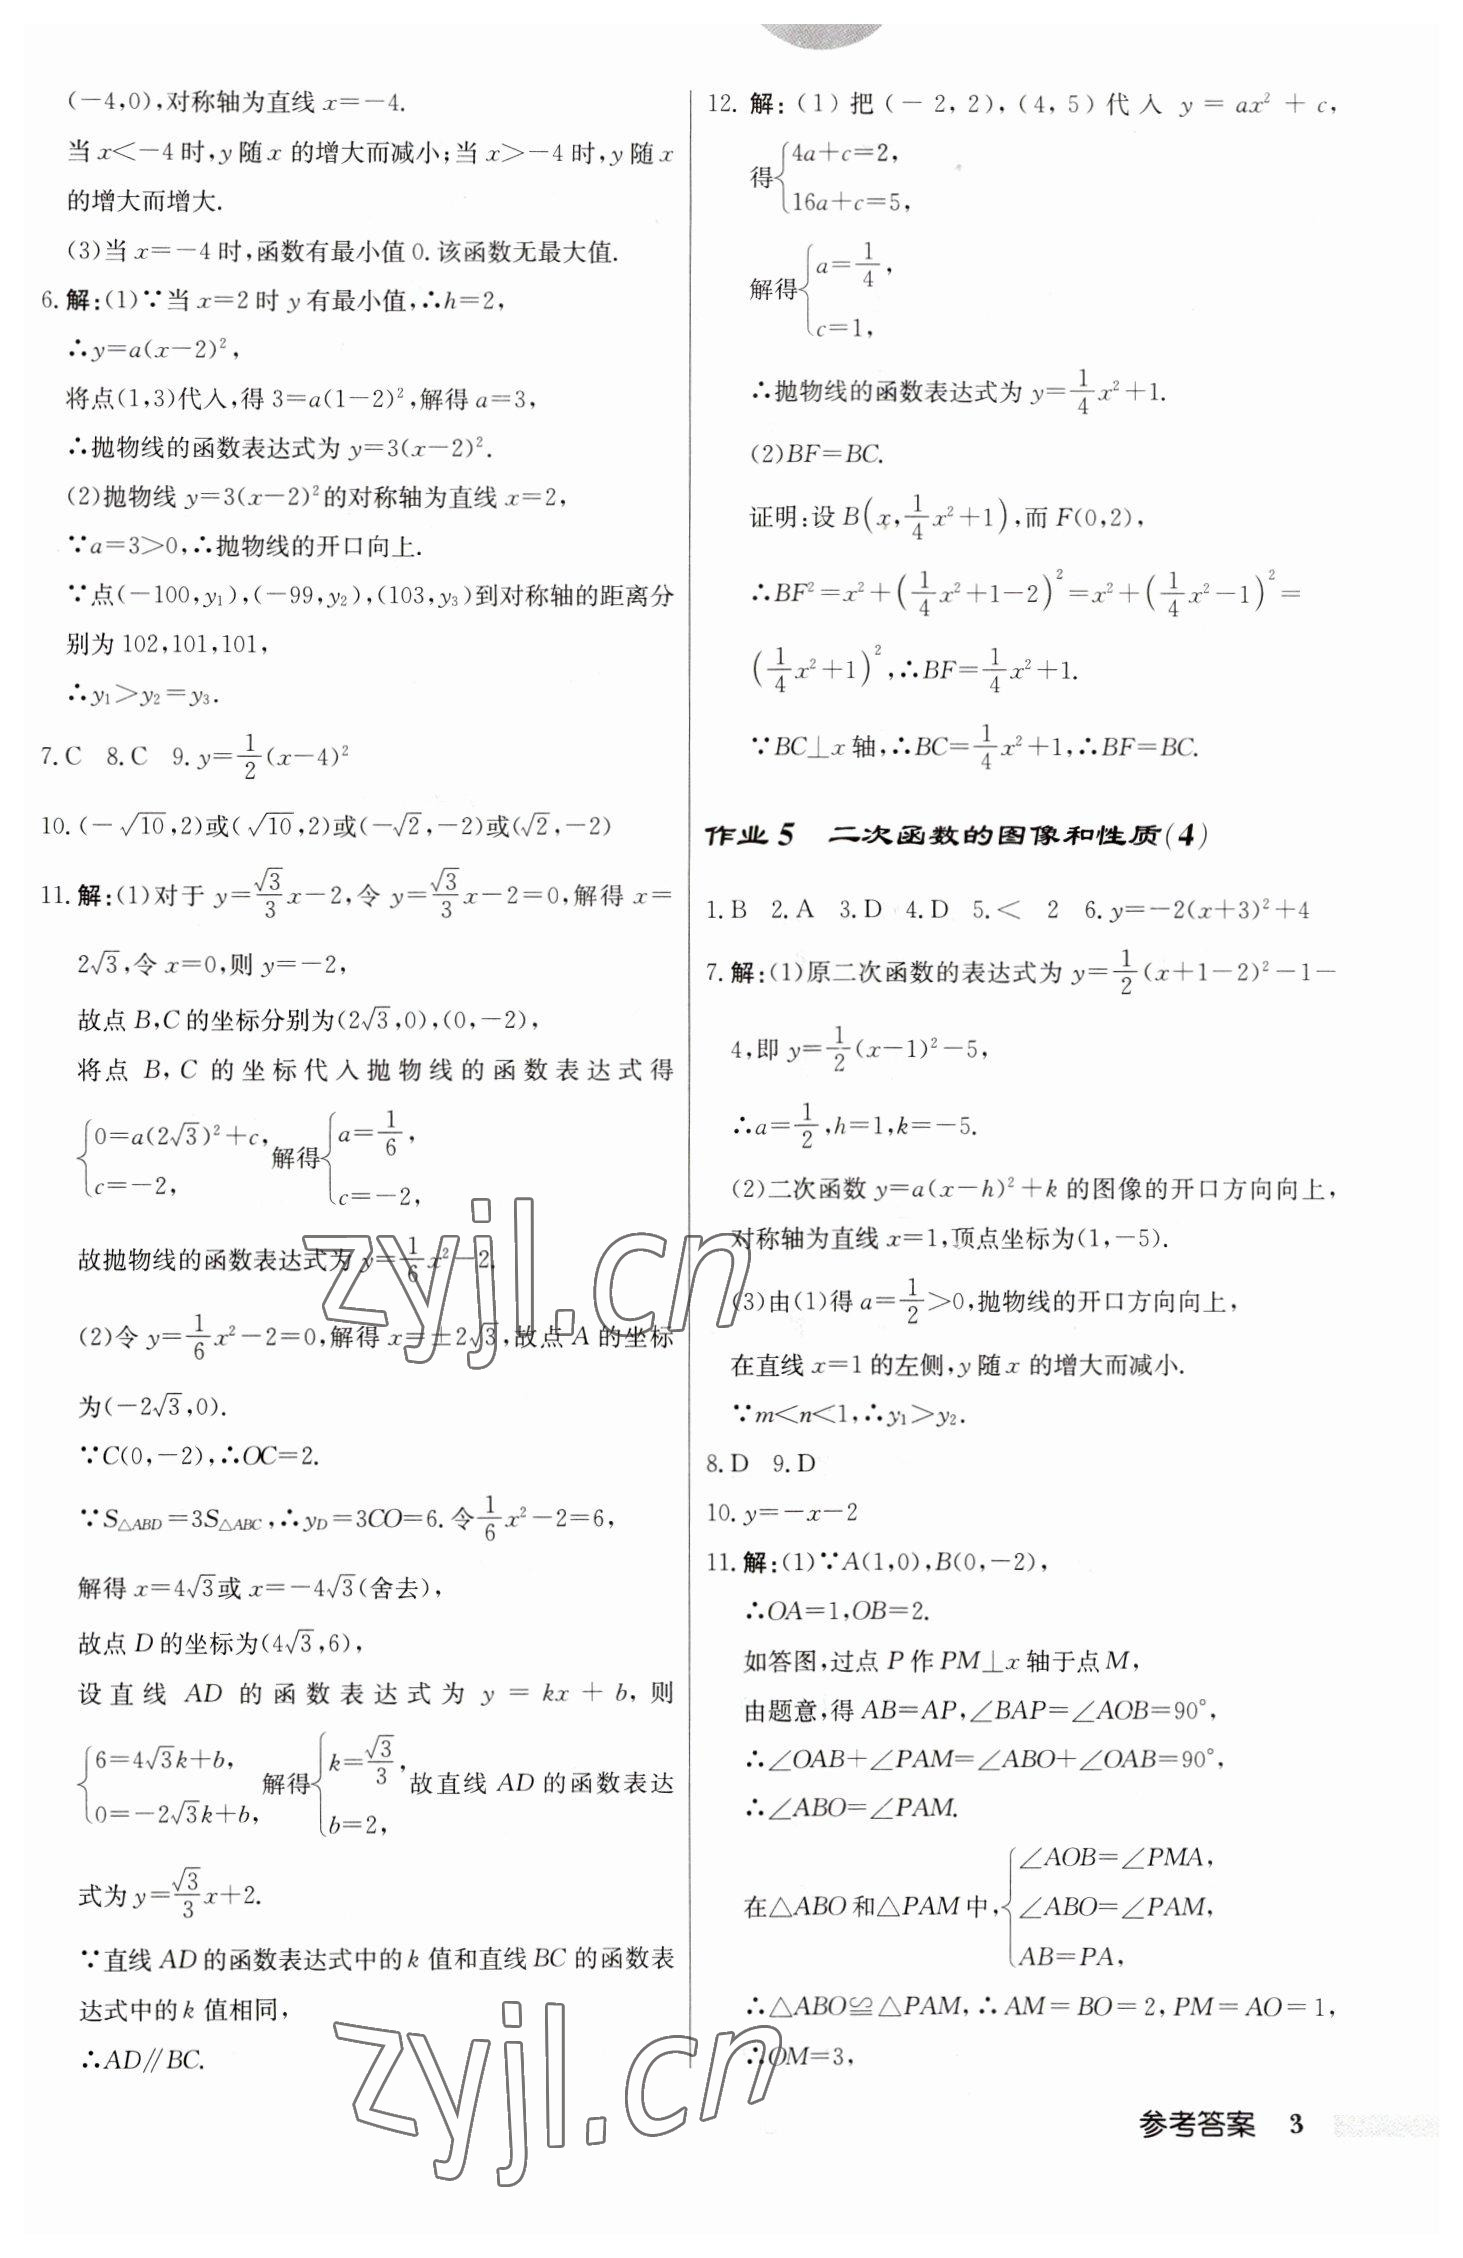 (-4,0),对称轴为直线 x=-4.
当 x<-4 时,y 随 x 的增大而减小;当 x>-4 时,y 随 x
的增大而增大.
(3)当 x=-4 时,函数有最小值 0. 该函数无最大值.
6. 解:(1)∵当 x=2 时 y 有最小值,∴h=2,
∴y=a(x-2)²,
将点(1,3)代入,得 3=a(1-2)²,解得 a=3,
∴抛物线的函数表达式为 y=3(x-2)².
(2)抛物线 y=3(x-2)²的对称轴为直线 x=2,
∵a=3>0,∴抛物线的开口向上.
∵点(-100,y₁),(-99,y₂),(103,y₃)到对称轴的距离分
别为 102,101,101,
∴y₁>y₂=y₃.
7. C 8. C 9. y=1/2(x-4)²
10. (-√10,2)或(√10,2)或(-√2,-2)或(√2,-2)
11. 解:(1)对于 y=√3/3x-2,令 y=√3/3x-2=0,解得 x=
2√3,令 x=0,则 y=-2,
故点 B,C 的坐标分别为(2√3,0),(0,-2),
将点 B,C 的坐标代入抛物线的函数表达式得
{0=a(2√3)²+c, c=-2, 解得{a=1/6, c=-2,
故抛物线的函数表达式为 y=1/6x²-2.
(2)令 y=1/6x²-2=0,解得 x=±2√3,故点 A 的坐标
为(-2√3,0).
∵C(0,-2),∴OC=2.
∵S△ABD=3S△ABC,∴y_D=3CO=6. 令1/6x²-2=6,
解得 x=4√3或 x=-4√3(舍去),
故点 D 的坐标为(4√3,6),
设直线 AD 的函数表达式为 y=kx+b,则
{6=4√3k+b, 0=-2√3k+b, 解得{k=√3/3, b=2, 故直线 AD 的函数表达
式为 y=√3/3x+2.
∵直线 AD 的函数表达式中的 k 值和直线 BC 的函数表
达式中的 k 值相同,
∴AD∥BC.
12. 解:(1)把(-2,2),(4,5)代入 y=ax²+c,
得{4a+c=2, 16a+c=5,
解得{a=1/4, c=1,
∴抛物线的函数表达式为 y=1/4x²+1.
(2)BF=BC.
证明:设 B(x,1/4x²+1),而 F(0,2),
∴BF²=x²+(1/4x²+1-2)²=x²+(1/4x²-1)²=
(1/4x²+1)²,∴BF=1/4x²+1.
∵BC⊥x 轴,∴BC=1/4x²+1,∴BF=BC.
作业 5 二次函数的图像和性质(4)
1. B 2. A 3. D 4. D 5. < 2 6. y=-2(x+3)²+4
7. 解:(1)原二次函数的表达式为 y=1/2(x+1-2)²-1-
4,即 y=1/2(x-1)²-5,
∴a=1/2,h=1,k=-5.
(2)二次函数 y=a(x-h)²+k 的图像的开口方向向上,
对称轴为直线 x=1,顶点坐标为(1,-5).
(3)由(1)得 a=1/2>0,抛物线的开口方向向上,
在直线 x=1 的左侧,y 随 x 的增大而减小.
∵m<n<1,∴y₁>y₂.
8. D 9. D
10. y=-x-2
11. 解:(1)∵A(1,0),B(0,-2),
∴OA=1,OB=2.
如答图,过点 P 作 PM⊥x 轴于点 M,
由题意,得 AB=AP,∠BAP=∠AOB=90°,
∴∠OAB+∠PAM=∠ABO+∠OAB=90°,
∴∠ABO=∠PAM.
在△ABO 和△PAM 中,{∠AOB=∠PMA, ∠ABO=∠PAM, AB=PA,
∴△ABO≌△PAM,∴AM=BO=2,PM=AO=1,
∴OM=3,
参考答案 3
zyjl.cn
zyjl.cn